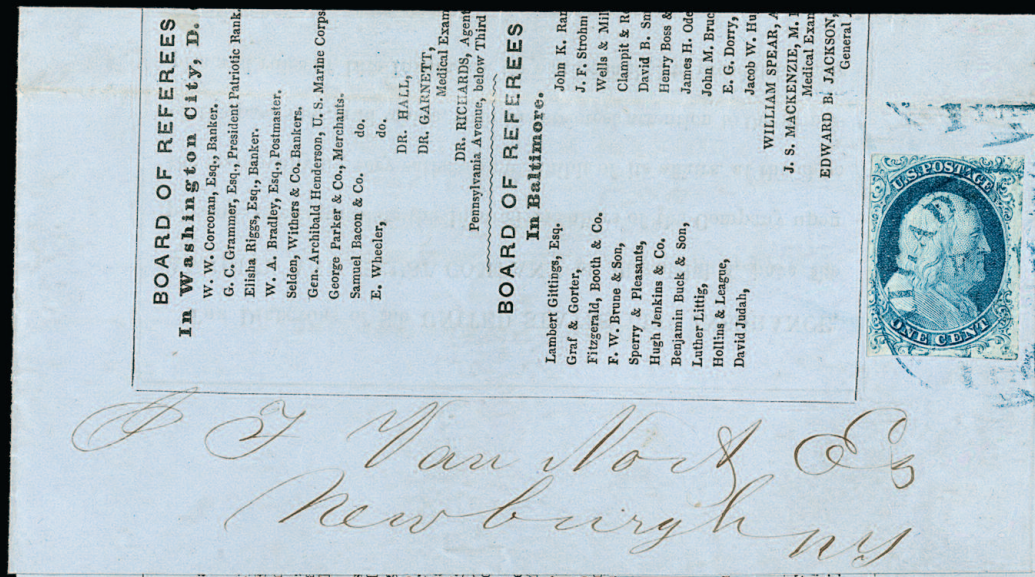 BOARD OF REFEREES
In Washington City, D.
W. W. Corcoran, Esq., Banker.
G. C. Grammer, Esq., President Patriotic Bank.
Elisha Riggs, Esq., Banker.
W. A. Bradley, Esq., Postmaster.
Selden, Withers & Co. Bankers.
Gen. Archibald Henderson, U. S. Marine Corps.
George Parker & Co., Merchants.
Samuel Bacon & Co. do.
E. Wheeler, do.
DR. HALL,
DR. GARNETT,
Medical Exam
DR. RICHARDS, Agent
Pennsylvania Avenue, below Third
BOARD OF REFEREES
In Baltimore.
Lambert Gittings, Esq.
Graf & Gorter,
Fitzgerald, Booth & Co.
F. W. Brune & Son,
Sperry & Pleasants,
Hugh Jenkins & Co.
Benjamin Buck & Son,
Luther Littig,
Hollins & League,
David Judah,
John K. Ran
J. F. Strohm
Wells & Mil
Clampit & Re
David B. Sm
Henry Boss &
James H. Ode
John M. Bruc
E. G. Dorry,
Jacob W. Hu
WILLIAM SPEAR, A
J. S. MACKENZIE, M.
Medical Exam
EDWARD B. JACKSON,
General
U.S. POSTAGE
ONE CENT
Van Nort Esq
Newburgh
NY